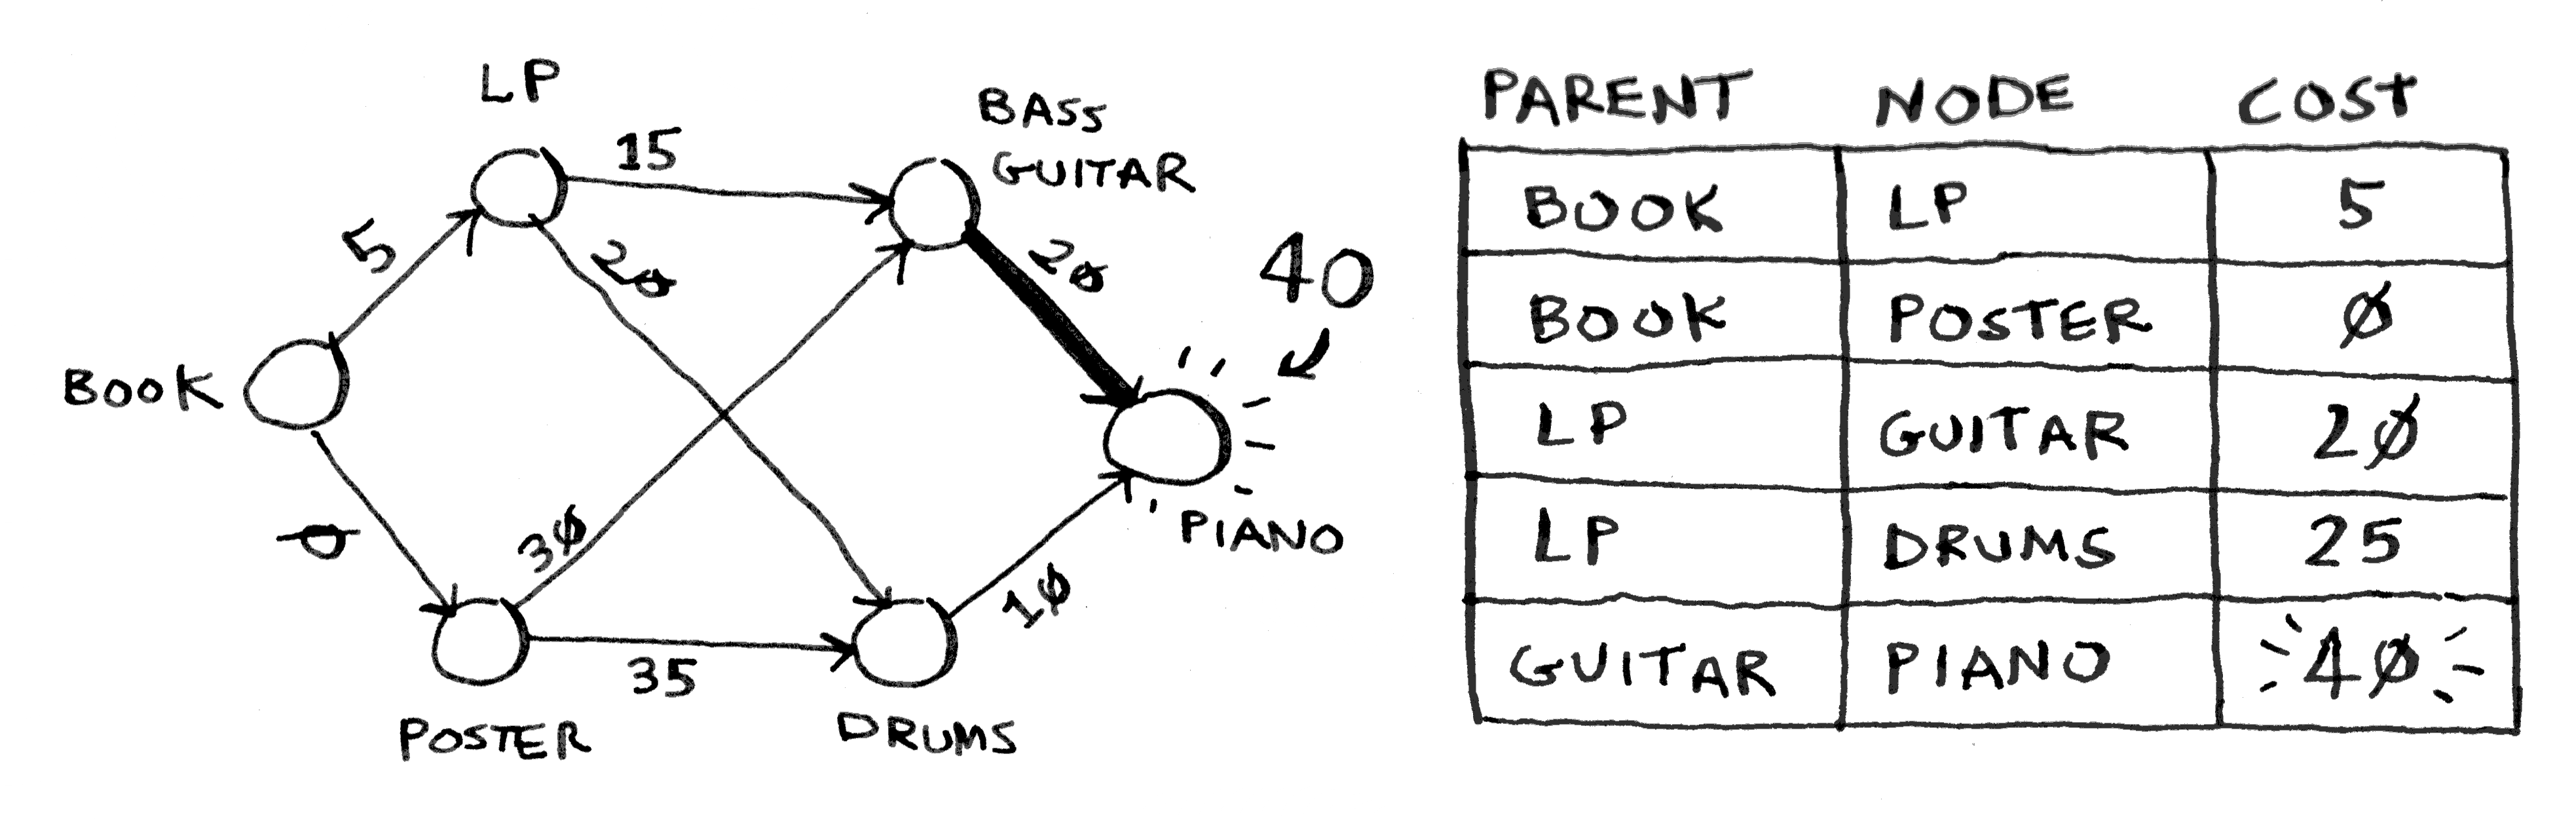 LP
15
BASS
GUITAR
5
20
20
40
BOOK
PIANO
0
30
10
35
POSTER
DRUMS
PARENT NODE COST
BOOK LP 5
BOOK POSTER Ø
LP GUITAR 2Ø
LP DRUMS 25
GUITAR PIANO 4Ø